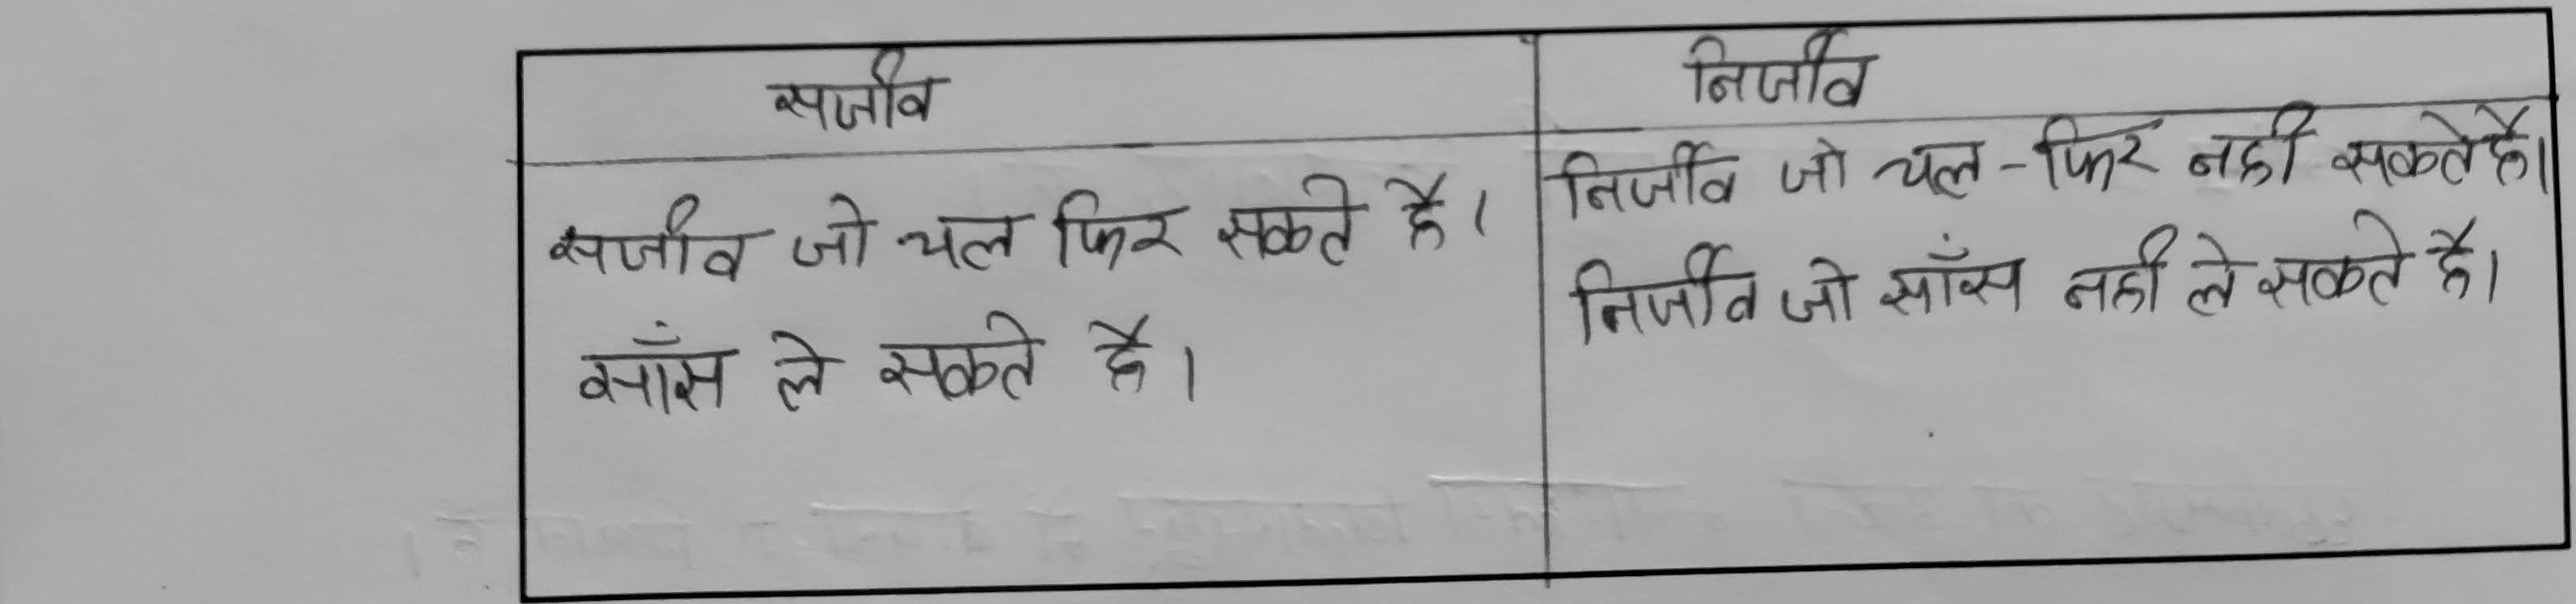 सजीव
निर्जीव
सजीव जो चल फिर सकते है।
साँस ले सकते है।
निर्जीव जो चल-फिर नही सकते है।
निर्जीव जो साँस नही ले सकते है।